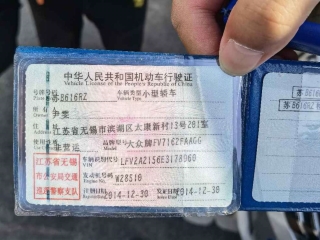 中华人民共和国机动车行驶证
Vehicle License of the People's Republic of China
号牌号码 苏B616RZ 车辆类型 小型轿车
Vehicle Type
所有人 伊斐
住址 江苏省无锡市滨湖区太康新村13号201室
非营运 品牌型号 大众牌FV7162FAAGG
江苏省无锡
市公安局交通
巡逻警察支队
车辆识别代号 LFV2A2156E3178960
VIN
发动机号码 W28518
Engine No.
注册日期 2014-12-30 发证日期 2014-12-30
苏B616RZ